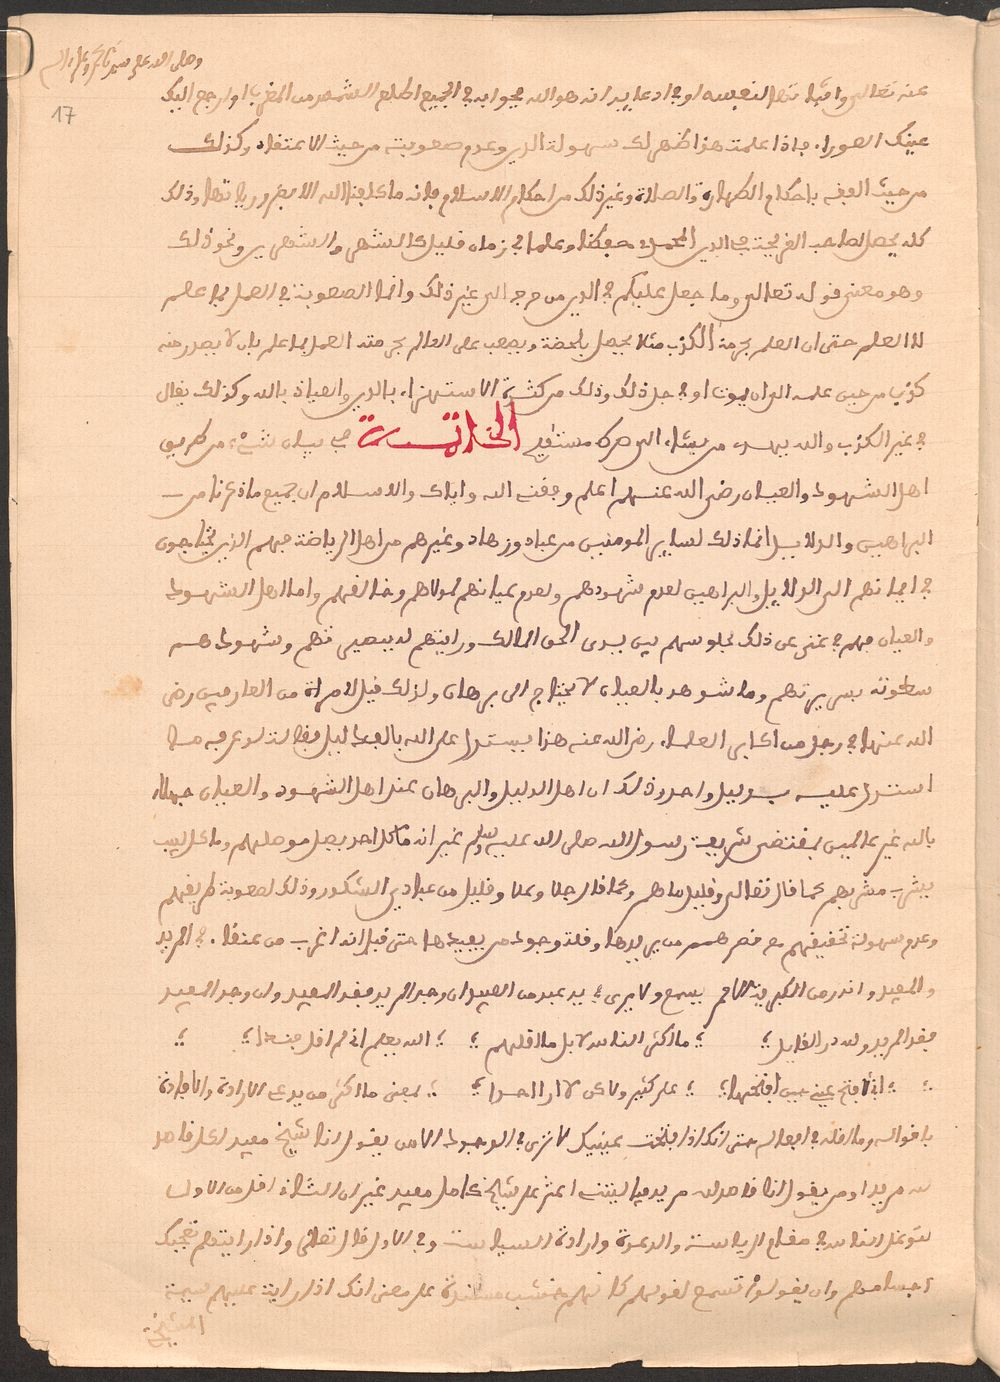 وصلى الله على سيدنا محمد وعلى اله
17
عنه تعالى واثباتها لنفسه او في ادعايه انه هو الله بجوابه في الجميع اطلع الشمس من المغرب او ارجع اليك
عينك العورا، فاذا علمت هذا ظهر لك سهولة الدين وعدم صعوبته من حيث الاعتقاد وكذلك
من حيث الفقه باحكام الطهارة والصلاة وغير ذلك من احكام الاسلام فانه ما كلفنا الله الا بضرورياتها وذلك
كله يحصل لصاحب القريحة في الدين المحمدي حفظا وعلما في زمان قليل كالشهر والشهرين ونحو ذلك
وهو معنى قوله تعالى وما جعل عليكم في الدين من حرج الى غير ذلك وانما الصعوبة في العمل بما علم
لا العلم حتى ان العلم بحرمة الكذب مثلا يحصل بلحظة ويصعب على العالم بحرمته العمل بما علم بان لا يصدر منه
كذب من حين علمه الى ان يموت او في جل ذلك وذلك من كثرة الاستهزاء بالدين والعياذ بالله وكذلك يقال
في غير الكذب والله يهدي من يشاء الى صراط مستقيم الخاتمة في بيان شيء من طريق
اهل الشهود والعيان رضي الله عنهم اعلم وفقني الله واياك والاسلام ان جميع ما ذكرنا من
البراهين والدلايل انما ذلك لساير المومنين من عباد وزهاد وغيرهم من اهل الرياضة فهم الذين يحتاجون
في ايمانهم الى الدلايل والبراهين لعدم شهودهم ولعدم عيانهم لمولاهم وخالقهم واما اهل الشهود
والعيان فهم في غنى عن ذلك لجلوسهم بين يدي الحق المالك ورايتهم له ببصيرتهم وشهودهم
سطوته بسريرتهم وما شوهد بالعيان لا يحتاج الى برهان ولذلك قيل لامراة من العارفين رضي
الله عنها في رجل من اكابر العلماء رضي الله عنه هذا يستدل على الله بالف دليل فقالت لو عرفه ما
استدل عليه بدليل واحد وذلك ان اهل الدليل والبرهان عند اهل الشهود والعيان جهلاء
بالله غير عالمين بمقتضى شريعة رسول الله صلى الله عليه وسلم غير انه ما كل احد يصل موصلهم وما كل لبيب
يشرب مشربهم كما قال تعالى وقليل ما هم وكما قال جل وعلا وقليل من عبادي الشكور وذلك لصعوبة طريقهم
وعدم سهولة تحقيقهم مع قصر همم من يريدها وقلة وجود من يفيدها حتى قيل انه اغرب من عنقاء في المريد
والمفيد واندر من الكبريت الاحمر يسمع ولا يرى في يد عبد من العبيد ان وجد المريد فقد المفيد وان وجد المفيد
فقد المريد ولله در القايل ؛ ؛ ما اكثر الناس لا بل ما اقلهم ؛ ؛ الله يعلم اني لم اقل فندا ؛ ؛
؛ ؛ اني لافتح عيني حين افتحها ؛ ؛ على كثير ولكن لا ارى احدا ؛ ؛ بمعنى ما اكثر من يدعي الارادة والافادة
باقواله وما اقله في افعاله حتى انك اذا فتحت عينيك لا ترى في الوجود الا من يقول انا شيخ مفيد لكل قاصد
له مريد او من يقول انا قاصد لله مريد فياليتني اعثر على شيخ كامل مفيد غير ان الثاني اقل من الاول
لتوغل الناس في مقام الرياسة والدعوة وارادة السياسة وفي الاول قال تعالى واذا رايتهم تعجبك
اجسامهم وان يقولوا تسمع لقولهم كانهم خشب مسندة على معنى انك اذا رايت عليهم سمة
المشيخة